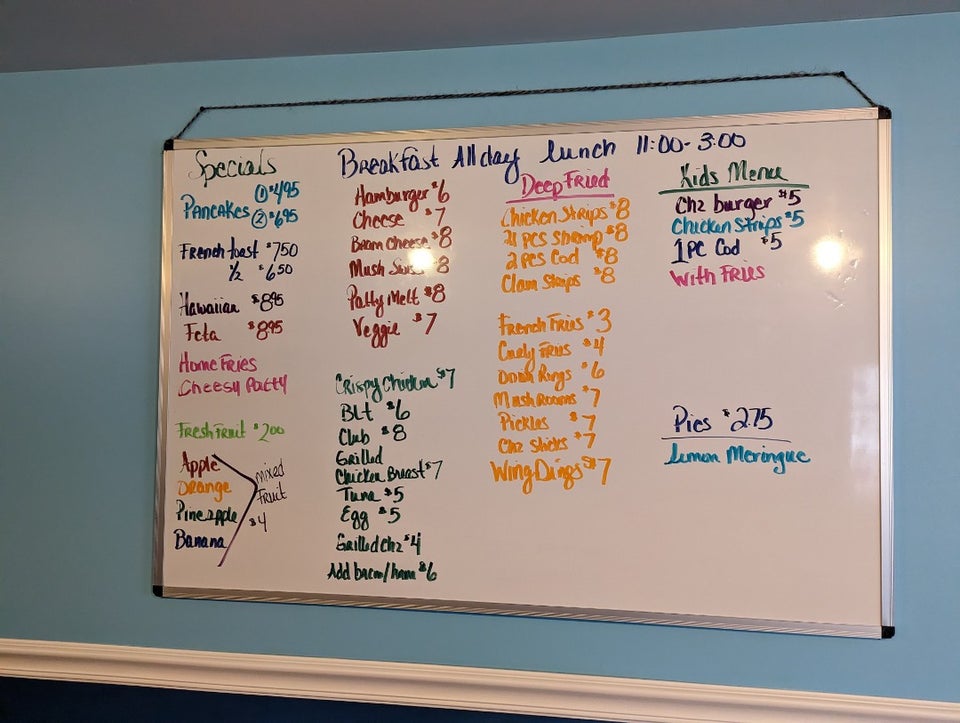 Specials
Pancakes ① $4.95
② $6.95
French toast $7.50
1/2 $6.50
Hawaiian $8.95
Feta $8.95
Home Fries
Cheesy Patty
Fresh Fruit $2.00
Apple
Orange
Pineapple
Banana
mixed
Fruit
$4
Breakfast All day lunch 11:00-3:00
Hamburger $6
Cheese $7
Bacon Cheese $8
Mush Swiss $8
Patty Melt $8
Veggie $7
Crispy Chicken $7
BLT $6
Club $8
Grilled
Chicken Breast $7
Tuna $5
Egg $5
Grilled Chz $4
Add bacon/ham $6
Deep Fried
Chicken Strips $8
21 PCS Shrimp $8
2 PCS Cod $8
Clam Strips $8
French Fries $3
Curly Fries $4
Onion Rings $6
Mushrooms $7
Pickles $7
Chz Sticks $7
Wing Dings $7
Kids Menu
Chz burger $5
Chicken Strips $5
1 PC Cod $5
With Fries
Pies $2.75
Lemon Meringue